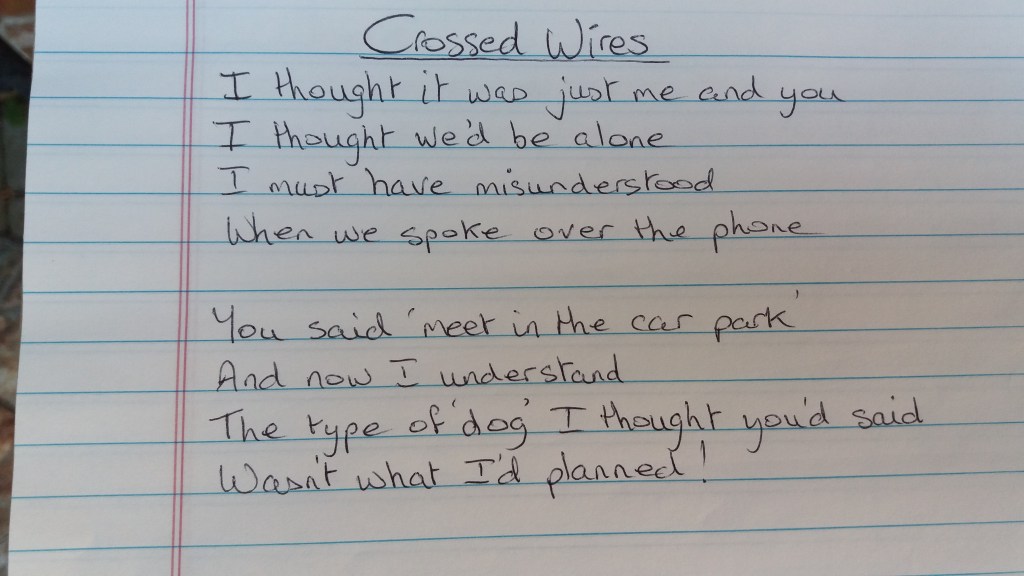 Crossed Wires
I thought it was just me and you
I thought we'd be alone
I must have misunderstood
When we spoke over the phone
You said 'meet in the car park'
And now I understand
The type of 'dog' I thought you'd said
Wasn't what I'd planned!